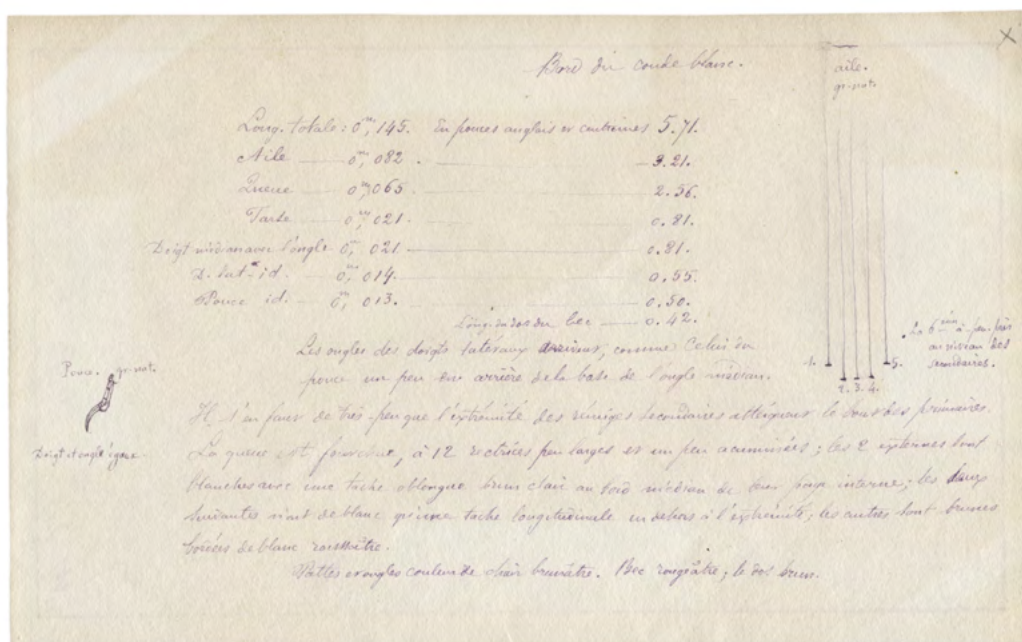 Bord du coude blanc.
aile.
gr. nat.
Long. totale : 0,m145. En pouces anglais et centièmes 5.71.
Aile — 0,m082. — 3.21.
Queue — 0,m065 — 2.56.
Tarse — 0,m021. — 0.81.
Doigt médian avec l'ongle 0,m021. — 0.81.
D. lat. id. — 0,m014. — 0.55.
Pouce id. — 0,m013. — 0.50.
Long. du dos du bec — 0.42.
La 6ème à peu près
au niveau des
secondaires.
1. 2. 3. 4. 5.
Les ongles des doigts latéraux arrivent, comme celui du
pouce un peu en arrière de la base de l'ongle médian.
Pouce. gr. nat.
Doigt et ongle égaux.
Il s'en faut de très peu que l'extrémité des rémiges secondaires atteignent le bout des primaires.
La queue est fourchue, à 12 rectrices peu larges et un peu acuminées ; les 2 externes sont
blanches avec une tache oblongue brun clair au médian de leur page interne ; les deux
suivantes n'ont de blanc qu'une tache longitudinale en dehors à l'extrémité ; les autres sont brunes
bordées de blanc roussâtre.
Pattes et ongles couleur de chair brunâtre. Bec rougeâtre ; le dos brun.